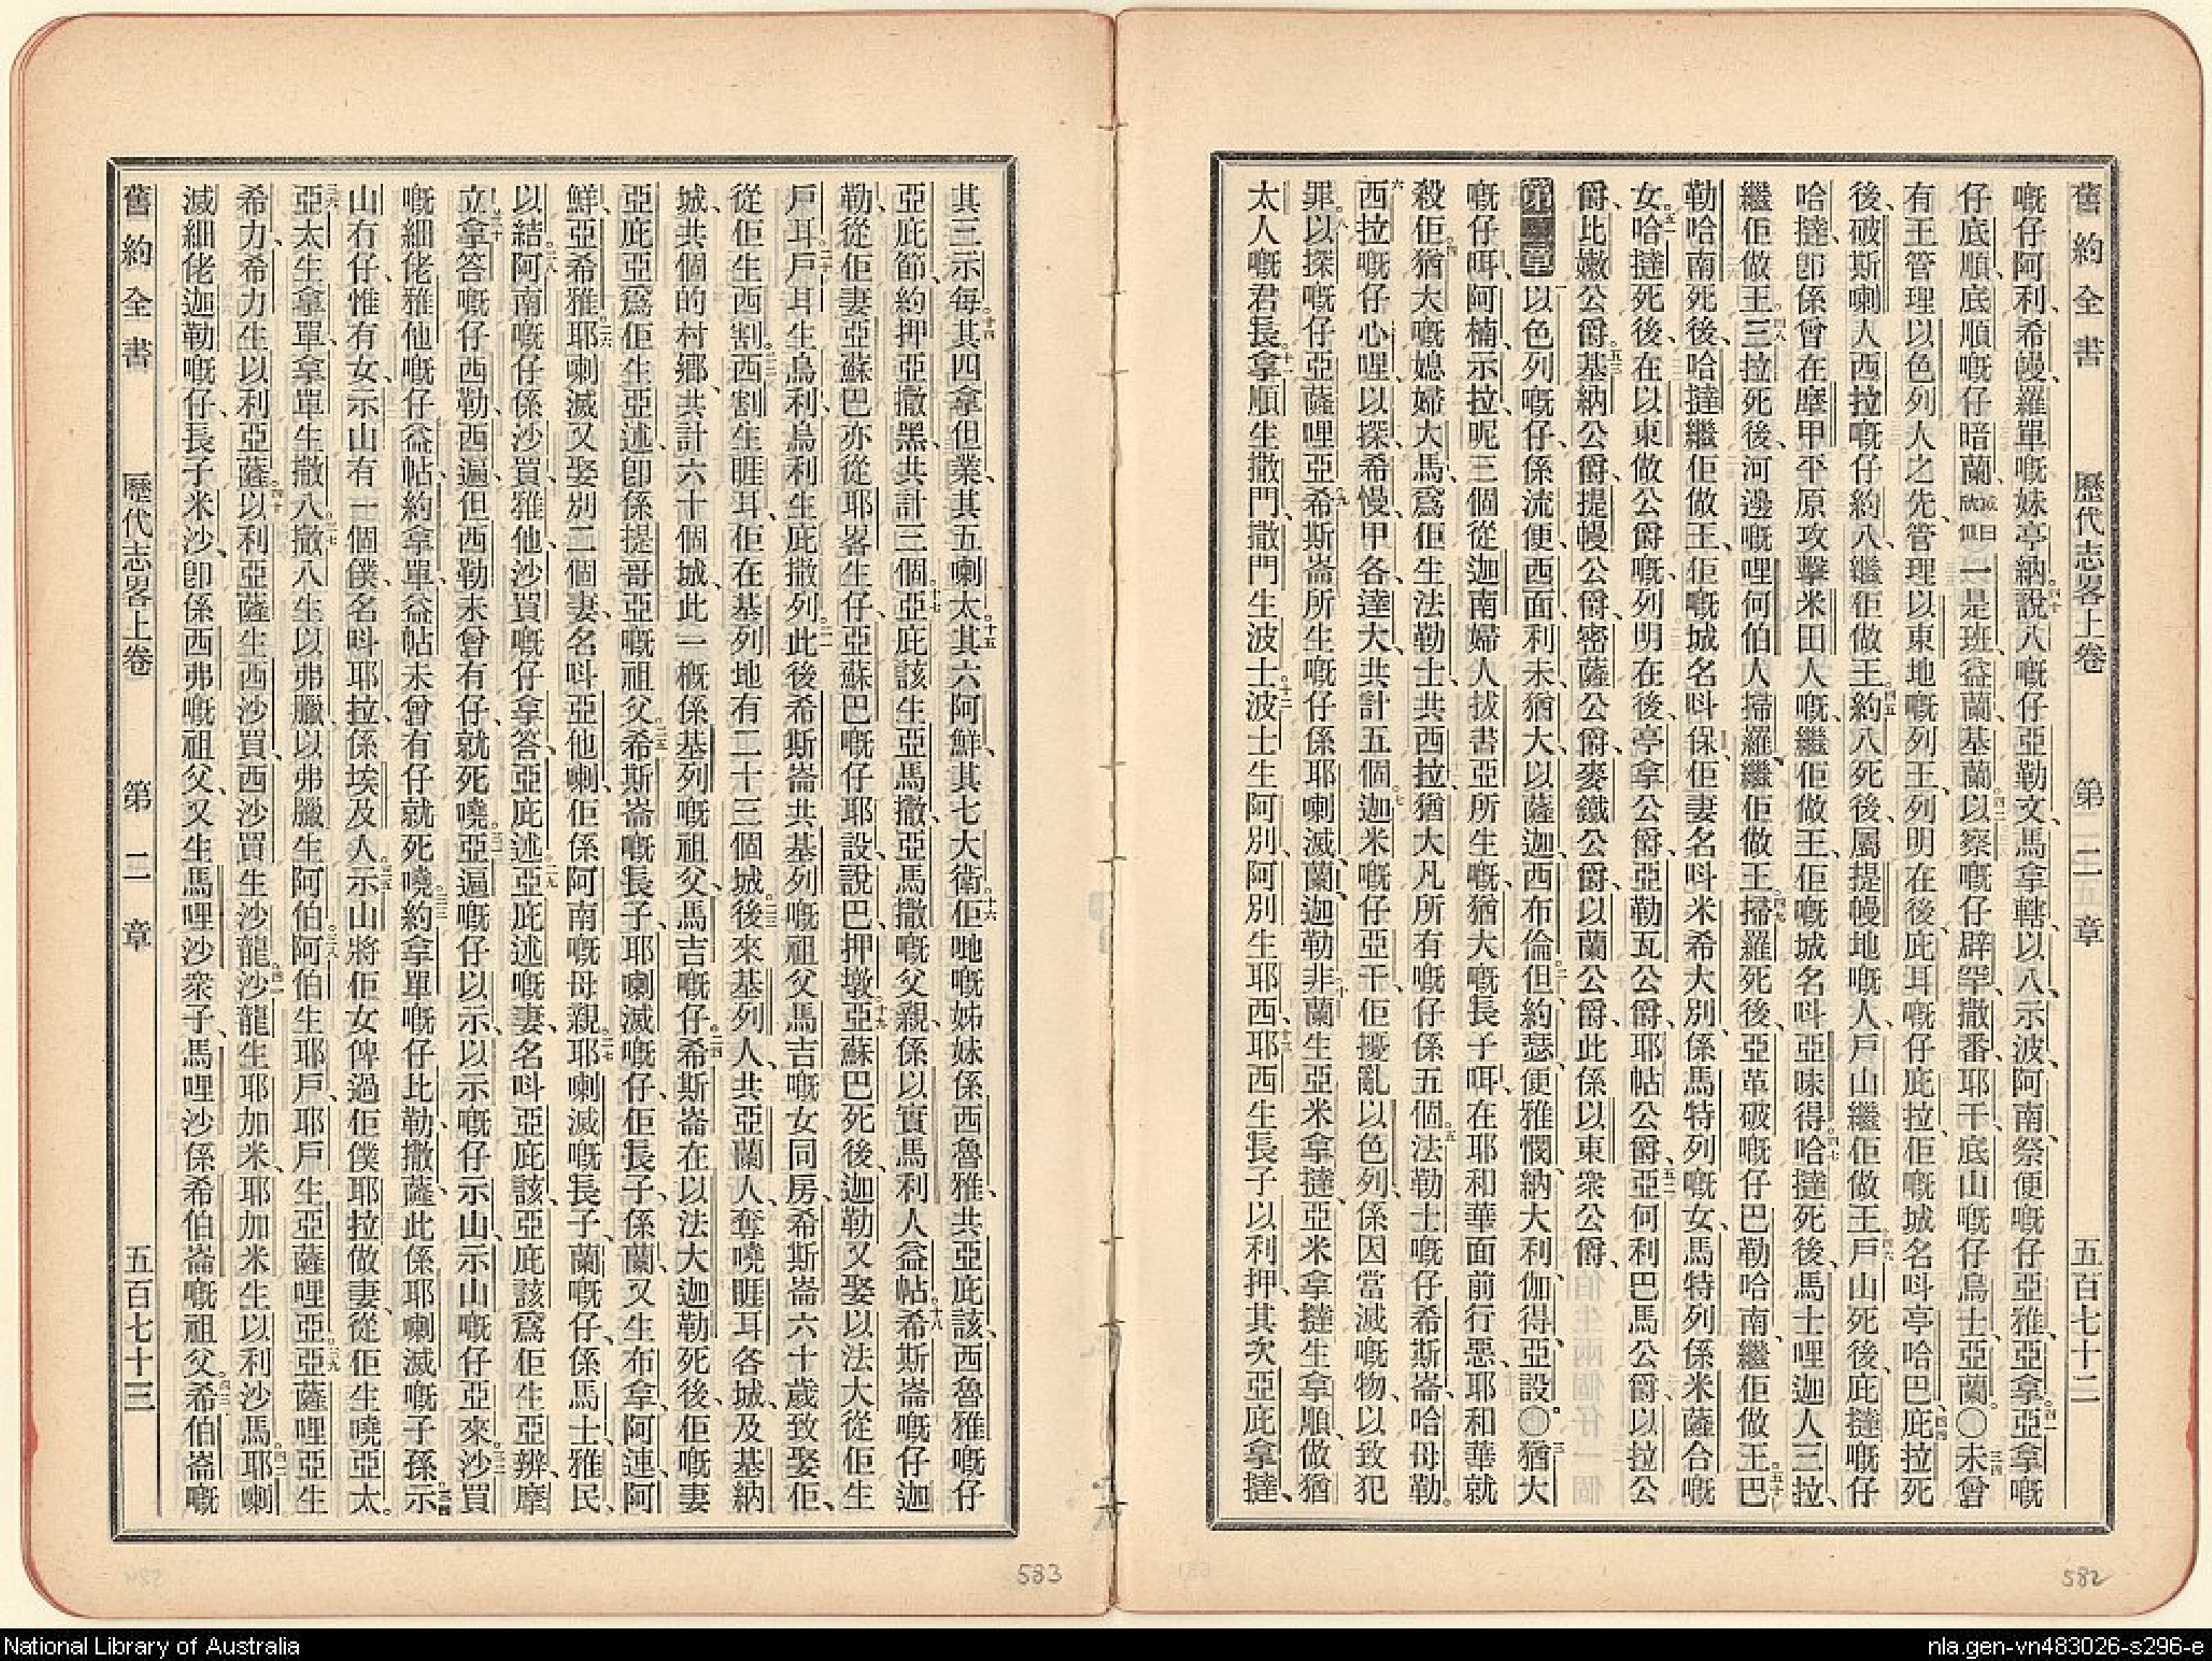 舊約全書 歷代志畧上卷 第二章 五百七十二
嘅仔阿利、希幔、羅單嘅妹亭納。四十說八嘅仔亞勒文、馬拿轄、以八、示波、阿南、祭便嘅仔亞雅、亞拿。四一亞拿嘅
仔底順、底順嘅仔暗蘭、一是班、益蘭、基蘭。四二以察嘅仔辟罕、撒番、耶干、底山嘅仔烏士、亞蘭。〇四三未曾
有王管理以色列人之先、管理以東地嘅列王、列明在後、庇耳嘅仔庇拉、佢嘅城名呌亭哈巴。四四庇拉死
後、破斯喇人西拉嘅仔約八繼佢做王。四五約八死後、屬提幔地嘅人、戶山繼佢做王。四六戶山死後、庇撻嘅仔
哈撻、卽係曾在摩甲平原攻擊米田人嘅、繼佢做王、佢嘅城名呌亞味得。四七哈撻死後、馬士哩迦人三拉、
繼佢做王。四八三拉死後、河邊嘅哩何伯人掃羅、繼佢做王。四九掃羅死後、亞革破嘅仔巴勒哈南、繼佢做王。五十巴
勒哈南死後、哈撻繼佢做王、佢嘅城名呌保、佢妻名呌米希大別、係馬特列嘅女、馬特列係米薩合嘅
女。五一哈撻死後、在以東做公爵嘅、列明在後、亭拿公爵、亞勒瓦公爵、耶帖公爵、五二亞何利巴馬公爵、以拉公
爵、比嫩公爵、五三基納公爵、提幔公爵、密薩公爵、麥鐵公爵、以蘭公爵、此係以東衆公爵。
第二章一以色列嘅仔、係流便、西面、利未、猶大、以薩迦、西布倫、二但、約瑟、便雅憫、納大利、伽得、亞設。〇三猶大
嘅仔咡、阿楠、示拉、呢三個從迦南婦人拔書亞所生嘅、猶大嘅長子咡、在耶和華面前行惡、耶和華就
殺佢。四猶大嘅媳婦大馬、爲佢生法勒士共西拉、猶大凡所有嘅仔係五個。五法勒士嘅仔希斯崙、哈母勒。
六西拉嘅仔心哩、以探、希慢、甲各、達大、共計五個。七迦米嘅仔亞干、佢擾亂以色列、係因當滅嘅物、以致犯
罪。八以探嘅仔亞薩哩亞。九希斯崙所生嘅仔係耶喇滅、蘭、迦勒非。十蘭生亞米拿撻、亞米拿撻生拿順、做猶
太人嘅君長。十一拿順生撒門、撒門生波士、十二波士生阿別、阿別生耶西、十三耶西生長子以利押、其次亞庇拿撻、
其三示每、十四其四拿但業、其五喇太。十五其六阿鮮、其七大衞。十六佢哋嘅姊妹係西魯雅、共亞庇該、西魯雅嘅仔
亞庇篩、約押、亞撒黑、共計三個。十七亞庇該生亞馬撒、亞馬撒嘅父親、係以實馬利人益帖。十八希斯崙嘅仔迦
勒、從佢妻亞蘇巴、亦從耶畧生仔、亞蘇巴嘅仔耶設、說巴、押墩。十九亞蘇巴死後、迦勒又娶以法大、從佢生
戶耳。二十戶耳生烏利、烏利生庇撒列。二一此後希斯崙共基列嘅祖父馬吉嘅女同房、希斯崙六十歲致娶佢、
從佢生西割。二二西割生睚耳、佢在基列地有二十三個城。二三後來基列人、共亞蘭人、奪嘵睚耳各城、及基納
城、共個的村鄉、共計六十個城、此一槪係基列嘅祖父、馬吉嘅仔。二四希斯崙在以法大迦勒死後、佢嘅妻
亞庇亞爲佢生亞述、卽係提哥亞嘅祖父。二五希斯崙嘅長子、耶喇滅嘅仔、佢長子、係蘭、又生布拿、阿連、阿
鮮、亞希雅。二六耶喇滅又娶別二個妻、名呌亞他喇、佢係阿南嘅母親。二七耶喇滅嘅長子、蘭嘅仔、係馬士、雅民、
以結。二八阿南嘅仔係沙買、雅他、沙買嘅仔拿答、亞庇述。二九亞庇述嘅妻名呌亞庇該、亞庇該爲佢生亞辨、摩
立。三十拿答嘅仔西勒、西遍、但西勒未曾有仔、就死嘵。三一亞遍嘅仔以示、以示嘅仔示山、示山嘅仔亞來。三二沙買
嘅細佬雅他嘅仔益帖、約拿單、益帖未曾有仔就死嘵。三三約拿單嘅仔比勒、撒薩、此係耶喇滅嘅子孫。三四示
山有仔、惟有女、示山有一個僕、名呌耶拉、係埃及人。三五示山將佢女俾過佢僕耶拉做妻、從佢生嘵亞太。
三六亞太生拿單、拿單生撒八、三七撒八生以弗臘、以弗臘生阿伯、三八阿伯生耶戶、耶戶生亞薩哩亞、三九亞薩哩亞生
希力、希力生以利亞薩、四十以利亞薩生西沙買、西沙買生沙龍、四一沙龍生耶加米、耶加米生以利沙馬。四二耶喇
滅細佬迦勒嘅仔、長子米沙、卽係西弗嘅祖父、又生馬哩沙衆子、馬哩沙係希伯崙嘅祖父。四三希伯崙嘅
舊約全書 歷代志畧上卷 第二章 五百七十三
583
582
National Library of Australia
nla.gen-vn483026-s296-e